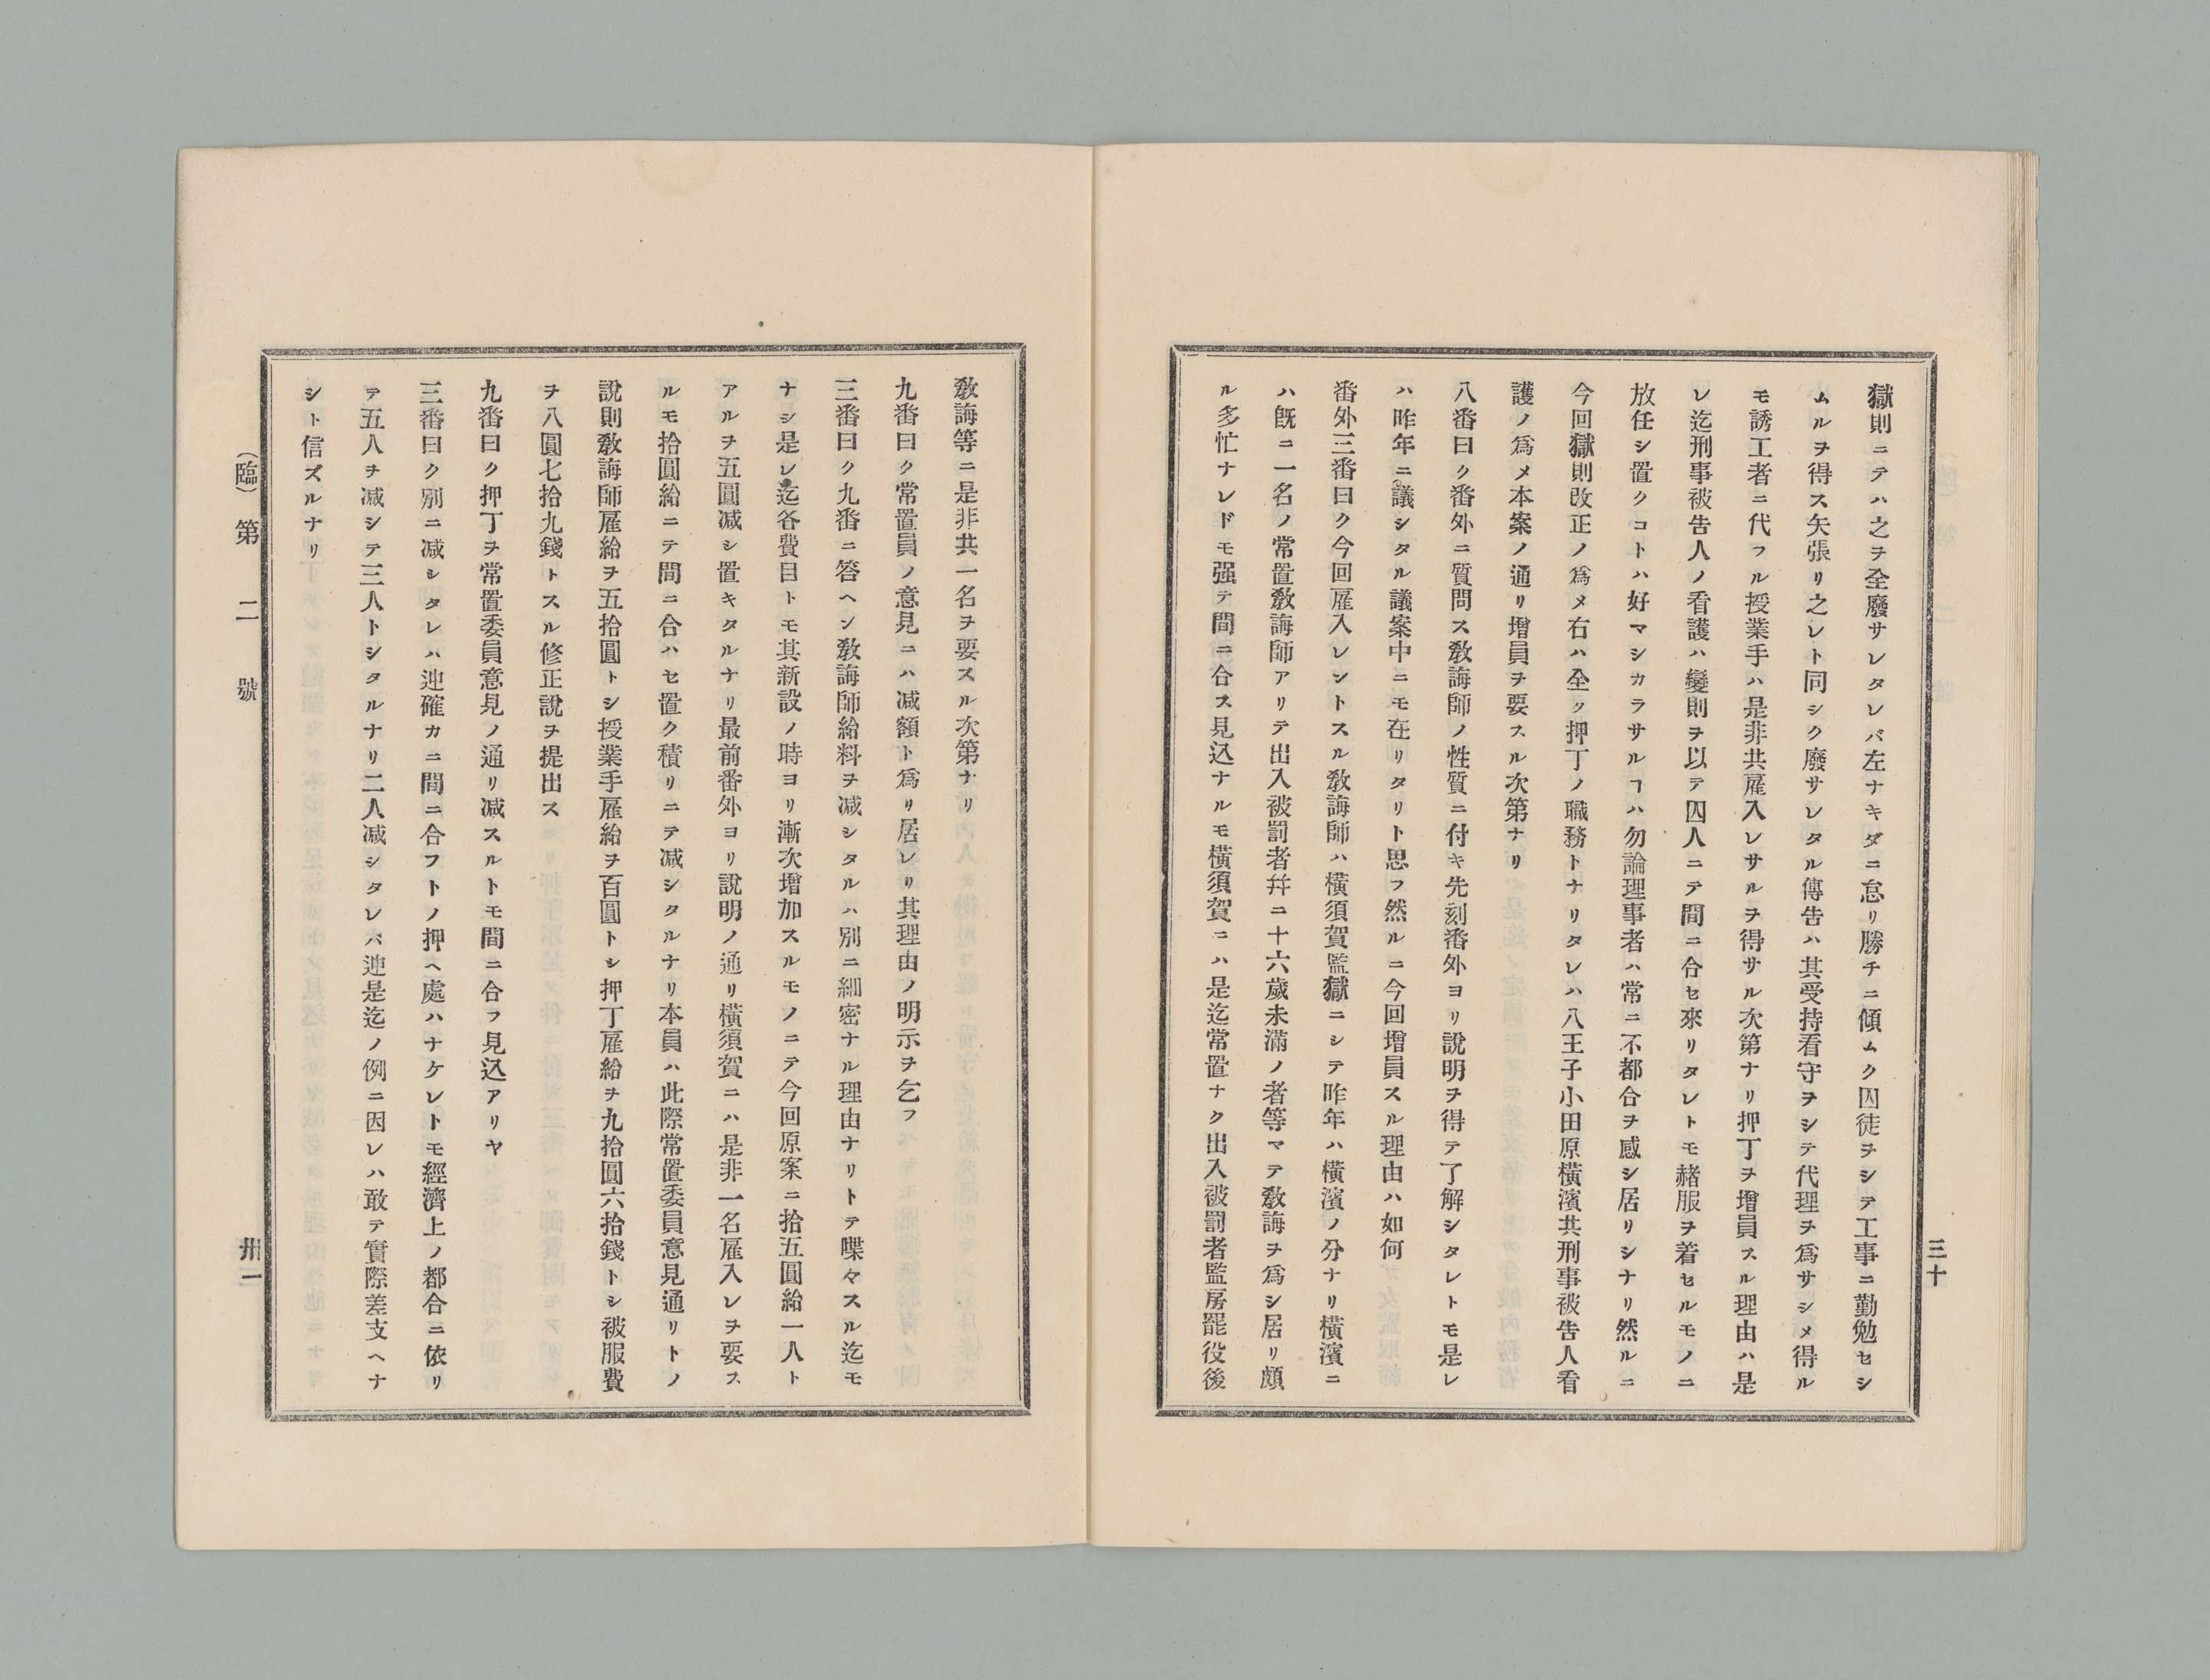 三十
獄則ニテハ之ヲ全廢サレタレバ左ナキダニ怠リ勝チニ傾ムク囚徒ヲシテ工事ニ勤勉セシ
ムルヲ得ス矢張リ之レト同シク廢サレタル傳告ハ其受持看守ヲシテ代理ヲ爲サシメ得ル
モ誘工者ニ代フル授業手ハ是非共雇入レサルヲ得サル次第ナリ押丁ヲ增員スル理由ハ是
レ迄刑事被告人ノ看護ハ變則ヲ以テ囚人ニテ間ニ合セ來リタレトモ赭服ヲ着セルモノニ
放任シ置クコトハ好マシカラサルヿハ勿論理事者ハ常ニ不都合ヲ感シ居リシナリ然ルニ
今回獄則改正ノ爲メ右ハ全ッ押丁ノ職務トナリタレハ八王子小田原橫濱共刑事被告人看
護ノ爲メ本案ノ通リ增員ヲ要スル次第ナリ
八番曰ク番外ニ質問ス敎誨師ノ性質ニ付キ先刻番外ヨリ說明ヲ得テ了解シタレトモ是レ
ハ昨年ニ議シタル議案中ニモ在リタリト思フ然ルニ今回增員スル理由ハ如何
番外三番曰ク今回雇入レントスル敎誨師ハ橫須賀監獄ニシテ昨年ハ橫濱ノ分ナリ橫濱ニ
ハ旣ニ一名ノ常置敎誨師アリテ出入被罰者幷ニ十六歲未滿ノ者等マテ敎誨ヲ爲シ居リ頗
ル多忙ナレドモ强テ間ニ合ス見込ナルモ橫須賀ニハ是迄常置ナク出入被罰者監房罷役後
敎誨等ニ是非共一名ヲ要スル次第ナリ
九番曰ク常置員ノ意見ニハ减額ト爲リ居レリ其理由ノ明示ヲ乞フ
三番曰ク九番ニ答ヘン敎誨師給料ヲ减シタルハ別ニ細密ナル理由ナリトテ喋々スル迄モ
ナシ是レ迄各費目トモ其新設ノ時ヨリ漸次增加スルモノニテ今回原案ニ拾五圓給一人ト
アルヲ五圓减シ置キタルナリ最前番外ヨリ說明ノ通リ橫須賀ニハ是非一名雇入レヲ要ス
ルモ拾圓給ニテ間ニ合ハセ置ク積リニテ减シタルナリ本員ハ此際常置委員意見通リトノ
說則敎誨師雇給ヲ五拾圓トシ授業手雇給ヲ百圓トシ押丁雇給ヲ九拾圓六拾錢トシ被服費
ヲ八圓七拾九錢トスル修正說ヲ提出ス
九番曰ク押丁ヲ常置委員意見ノ通リ减スルトモ間ニ合フ見込アリヤ
三番曰ク別ニ减シタレハ迚確カニ間ニ合フトノ押ヘ處ハナケレトモ經濟上ノ都合ニ依リ
テ五人ヲ减シテ三人トシタルナリ二人减シタレバ迚是迄ノ例ニ因レハ敢テ實際差支ヘナ
シト信ズルナリ
（臨）第二號
卅一